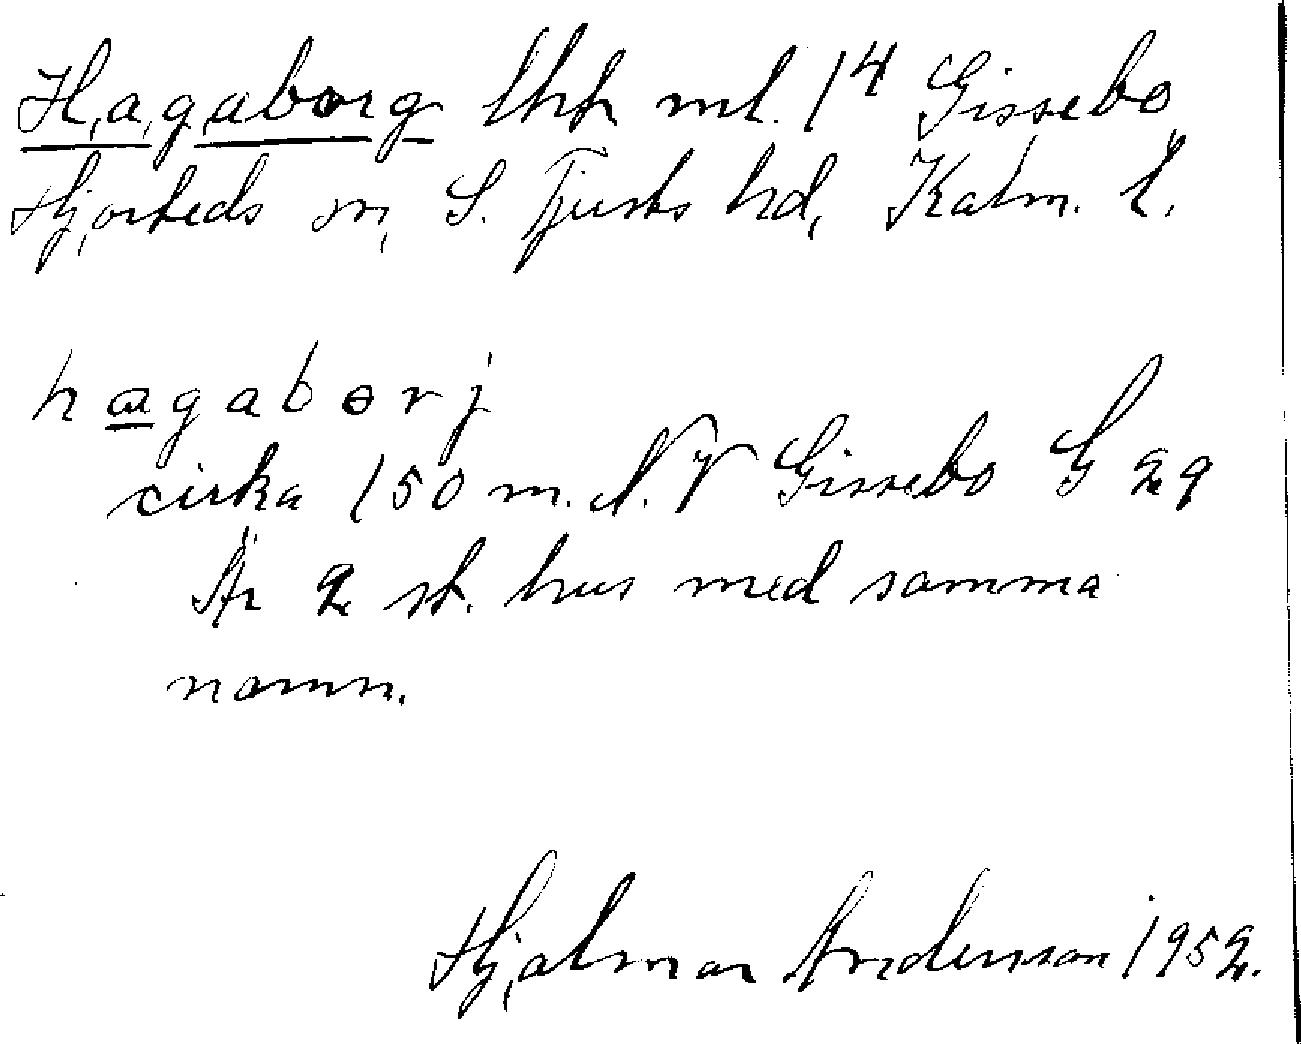 Hagaborg lht ml. 1⁴ Gissebo
Hjorteds sn, S. Tjusts hd, Kalm. l.
hagaborj
cirka 150 m. N.V Gissebo G 29
Är 2 st. hus med samma
namn.
Hjalmar Andersson 1952.